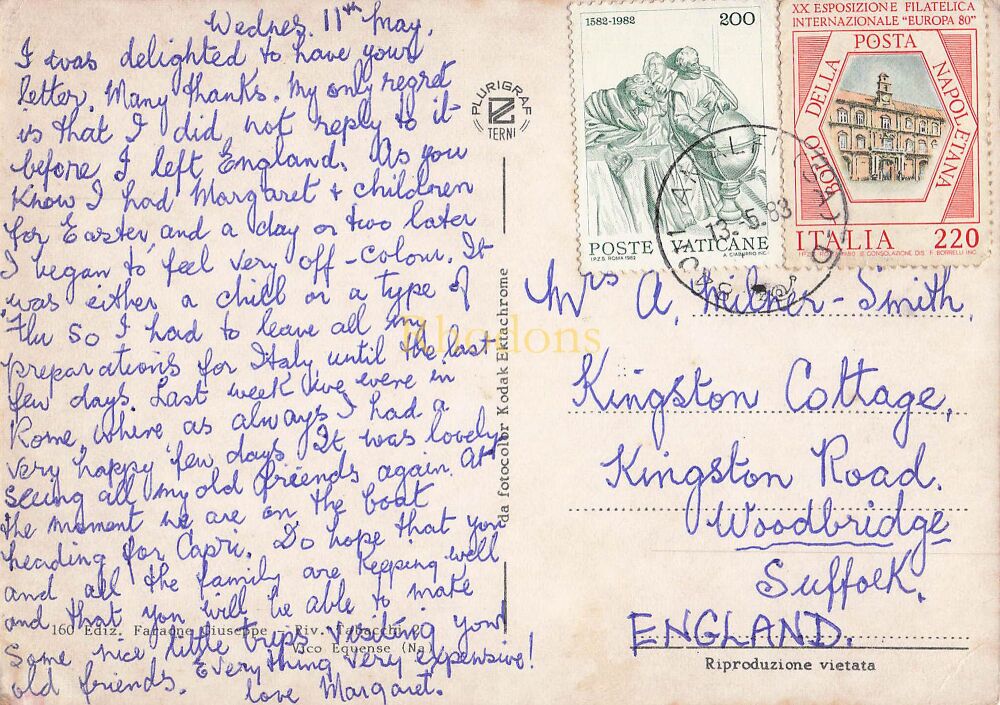 Wednes. 11th May.
I was delighted to have your
letter. Many thanks. My only regret
is that I did not reply to it
before I left England. As you
know I had Margaret + children
for Easter, and a day or two later
I began to feel very off-colour. It
was either a chill or a type of
'flu so I had to leave all my
preparations for Italy until the last
few days. Last week we were in
Rome, where as always I had a
very happy few days. It was lovely
seeing all my old friends again. At
the moment we are on the boat
heading for Capri. Do hope that you
and all the family are keeping well
and that you will be able to make
some nice little trips visiting your
old friends. Everything very expensive!
love Margaret.
160 Ediz. Faraone Giuseppe - Riv. Tabacchi
Vico Equense (Na)
PLURIGRAF
TERNI
da fotocolor Kodak Ektachrome
Rhodons
1582-1982 200
POSTE VATICANE
I.P.Z.S. ROMA 1982 A. CIABURRO INC.
XX ESPOSIZIONE FILATELICA
INTERNAZIONALE "EUROPA 80"
BOLLO DELLA POSTA NAPOLETANA
ITALIA 220
13.-5.83
Mrs A. Milner-Smith,
Kingston Cottage,
Kingston Road.
Woodbridge
Suffolk.
ENGLAND.
Riproduzione vietata